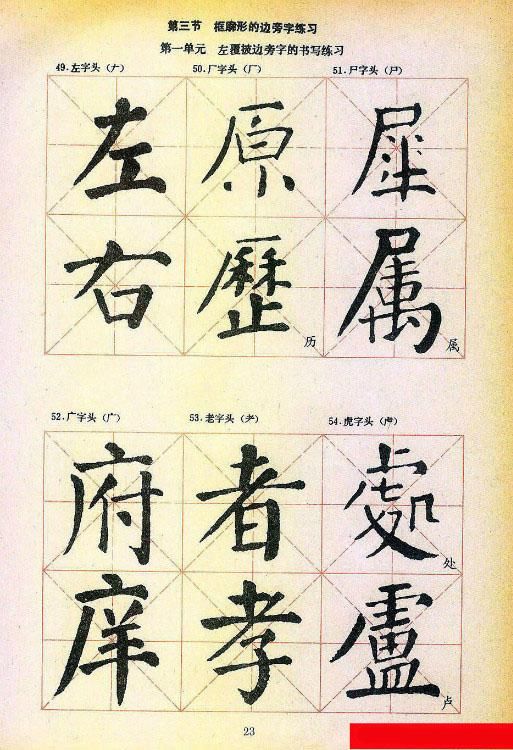 第三节 框廓形的边旁字练习
第一单元 左覆被边旁字的书写练习
49.左字头（𠂇） 50.厂字头（厂） 51.尸字头（尸）
左 原 犀
右 歷 历 属 属
52.广字头（广） 53.老字头（耂） 54.虎字头（虍）
府 者 處 处
庠 孝 盧 卢
23